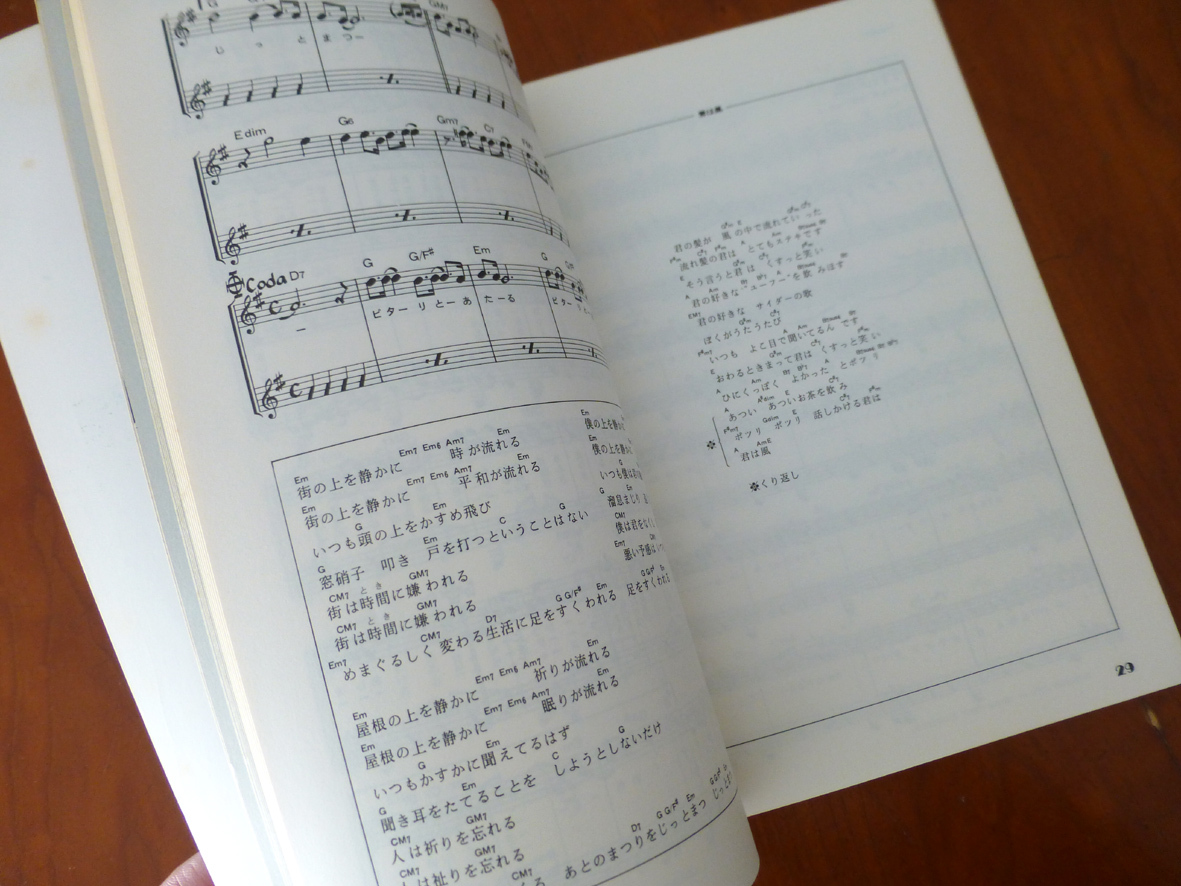 G GM7
じっとまつー
Edim G6 Gm7 C7
Coda D7 G G/F# Em G
ー ビターりとーあたーる ビターりと
Em Em7 Em6 Am7 Em
街の上を静かに 時が流れる
Em Em7 Em6 Am7 Em
街の上を静かに 平和が流れる
G
いつも頭の上をかすめ飛び
G Em C G
窓硝子 叩き 戸を打つということはない
CM7 とき GM7
街は時間に嫌われる
CM7 とき GM7
街は時間に嫌われる
Em7 CM7 D7 G G/F# Em
めまぐるしく変わる生活に足をすくわれる 足をすくわれる
Em Em7 Em6 Am7 Em
屋根の上を静かに 祈りが流れる
Em Em7 Em6 Am7 Em
屋根の上を静かに 眠りが流れる
G Em
いつもかすかに聞えてるはず
G Em C G
聞き耳をたてることを しようとしないだけ
CM7 GM7
人は祈りを忘れる
CM7 GM7
は祉りを忘れる
CM7 D7 G G/F# Em
る あとのまつりをじっとまつ じっと
Em
僕の上を静かに
Em
僕の上を静か
G
いつも僕は
G Em
溜息まじり
CM7
僕は君をなくし
Em7
悪い予感は
君は風
君の髪が 風の中で流れていった
流れ髪の君は とてもステキです
そう言うと君は くすっと笑い
君の好きな "ユーフー"を飲みほす
君の好きな サイダーの歌
ぼくがうたうたび
いつも よこ目で聞いてるんです
おわるときまって君は くすっと笑い
ひにくっぽく よかった とポツリ
あつい あついお茶を飲み
ポツリ ポツリ 話しかける君は
君は風
くり返し
29